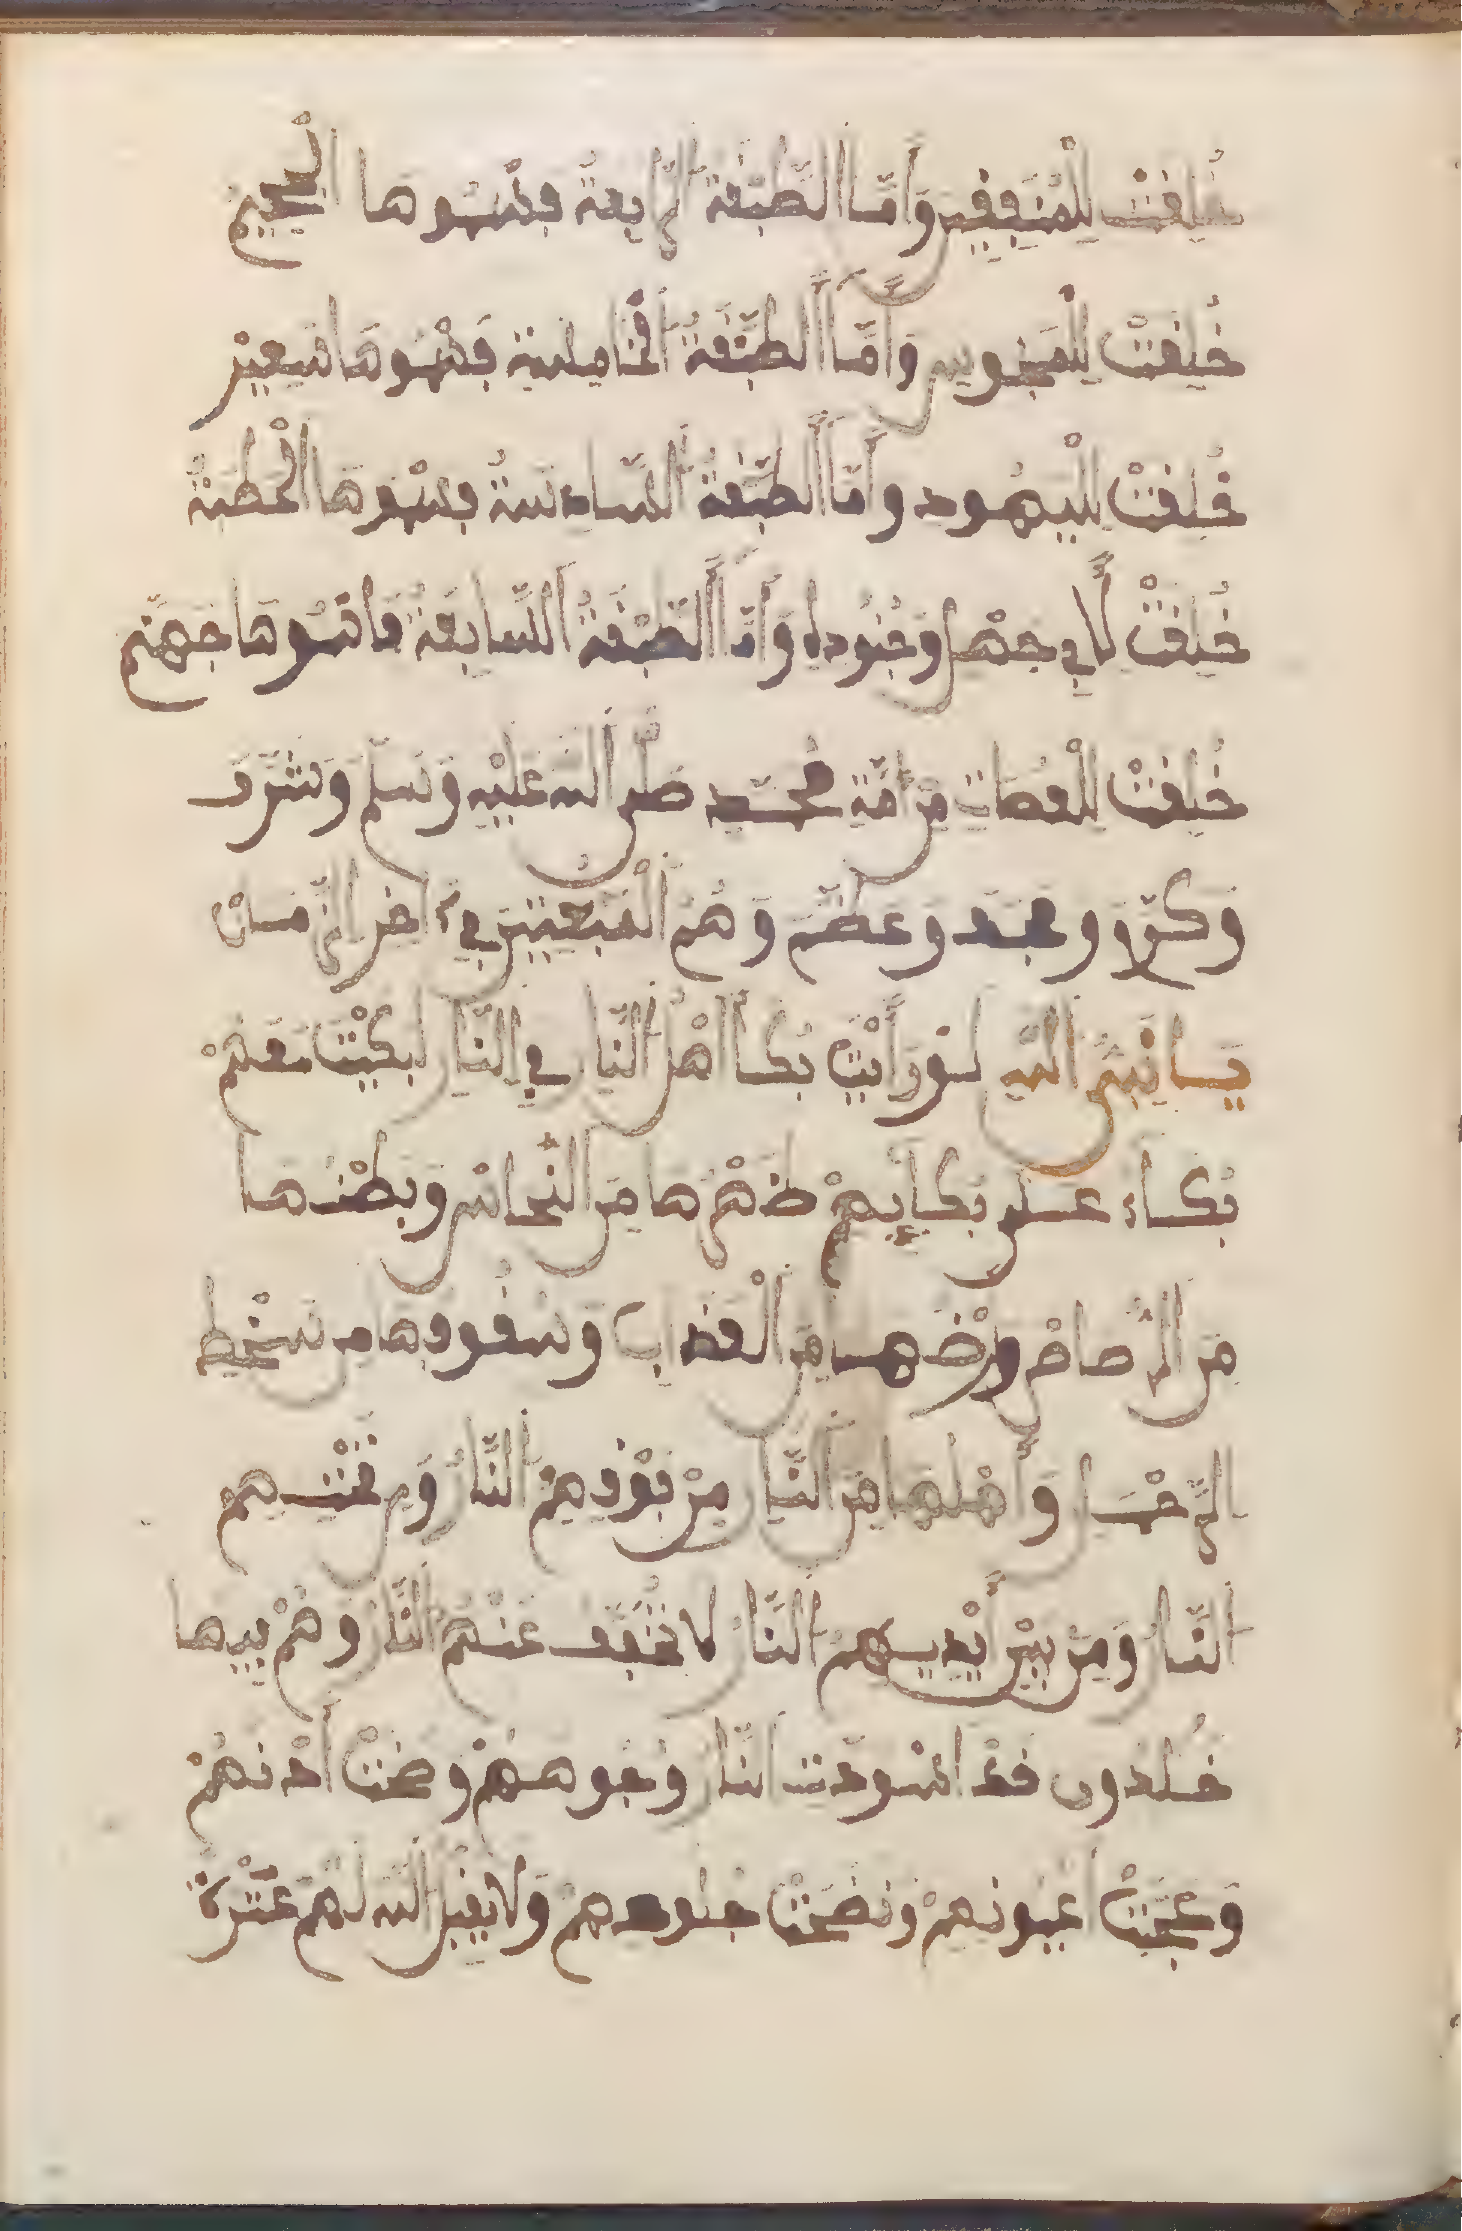 خُلِفَتْ لِلْمُنَٰفِفِينَ وَأَمَّا الطَّبْفَةُ الرَّابِعَةُ فِسْمُوهَا الْجَحِيمُ
خُلِفَتْ لِلْمَجُوسِ وَأَمَّا الطَّبْفَةُ الْخَامِسَةُ فِسْمُوهَا سَعِيرْ
خُلِفَتْ لِلْيَهُود وَأَمَّا الطَّبْفَةُ السَّادِسَةُ فِسْمُوهَا الْحُطَمَةُ
خُلِفَتْ لِأَبِي جَهْلٍ وَجُنُودِهِ وَأَمَّا الطَّبْفَةُ السَّابِعَةُ فَاسْمُوهَا جَهَنَّم
خُلِفَتْ لِلْعُصَاتِ مِنْ أُمَّةِ مُحَمَّدٍ صَلَّى اللَّه عَلَيْهِ وَسَلَّم وَشَرَّفَ
وَكَرَّمَ وَمَجَّدَ وَعَظَّمَ وَهُمُ فِي ءَاخِرِ الزَّمَان
يَا نَبِيَّ اللَّهِ لَوْ رَأَيْتَ بُكَا أَهْلِ النَّارِ فِي النَّارِ لَبَكَيْتَ مَعَهُمْ
بُكَاء عَلَى بُكَائِهِمْ ظَهْرُهَا مِنَ النُّحَاسِ وَبَطْنُهَا
مِنَ الرَّصَاصْ وَأَرْضُهَا مِنَ الْعَذَابِ وَسُفُوفهَا مِن سَخَطِ
الرَّحْمَٰنِ وَأَهْلُهَا مِنَ النَّارِ مِنْ فَوْفِهِمُ النَّارُ وَمِن تَحْتِهِم
النَّارُ وَمِنْ بَيْنِ أَيْدِيهِمُ النَّارُ لَا تُخَفَّف عَنْهُمُ النَّارُ وَهُمْ فِيهَا
خَٰلِدُون فَدْ اسْوَدَّتِ النَّار وُجُوهَهُمْ وَصَمَّتْ أُذْنَهُمْ
وَعَمِيَتْ أَعْيُونُهُمْ وَنَضِجَتْ جُلُودُهُمْ وَلَا يَفْبَلُ اللَّه لَهُمْ عَثْرَة